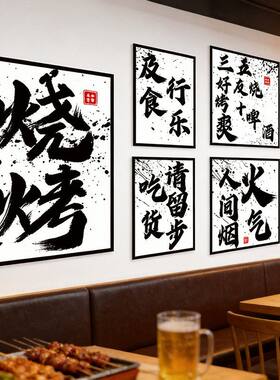 烧
烤
及食
行乐
三五
好友烧
烤十啤酒
爽
吃货
请留步
人间烟
火气